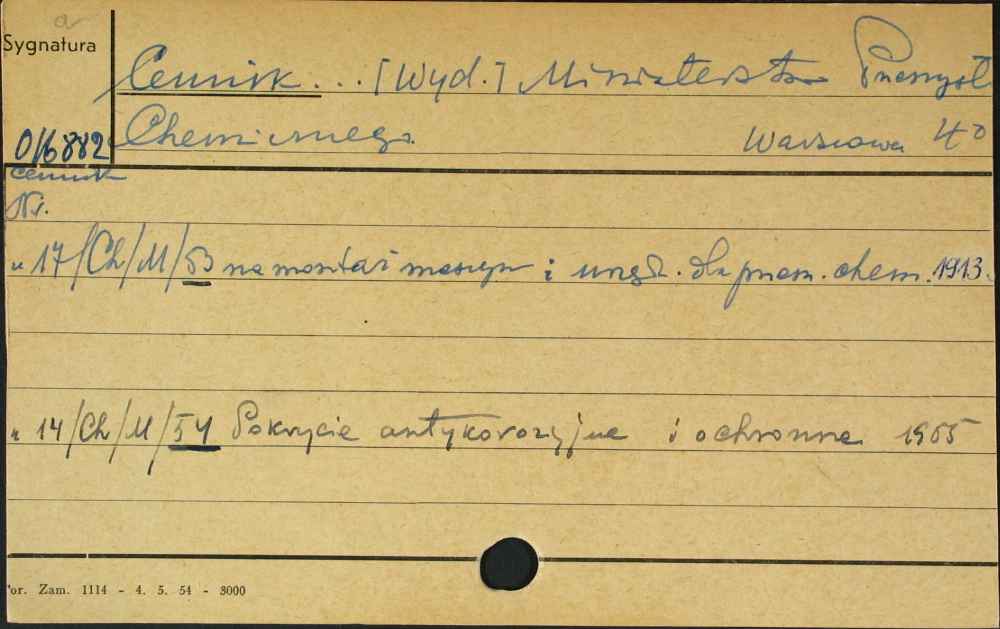 a
Sygnatura
Cennik ... [Wyd.] Ministerstwo Przemysł
Chemicznego. Warszawa 4°
O/6882
Cennik
Nr.
„ 17/Ch/M/53 na montaż maszyn i urząd. dla przem. chem. 1913.
„ 14/Ch/M/54 Pokrycie antykorozyjne i ochronne 1955
or. Zam. 1114 - 4. 5. 54 - 3000